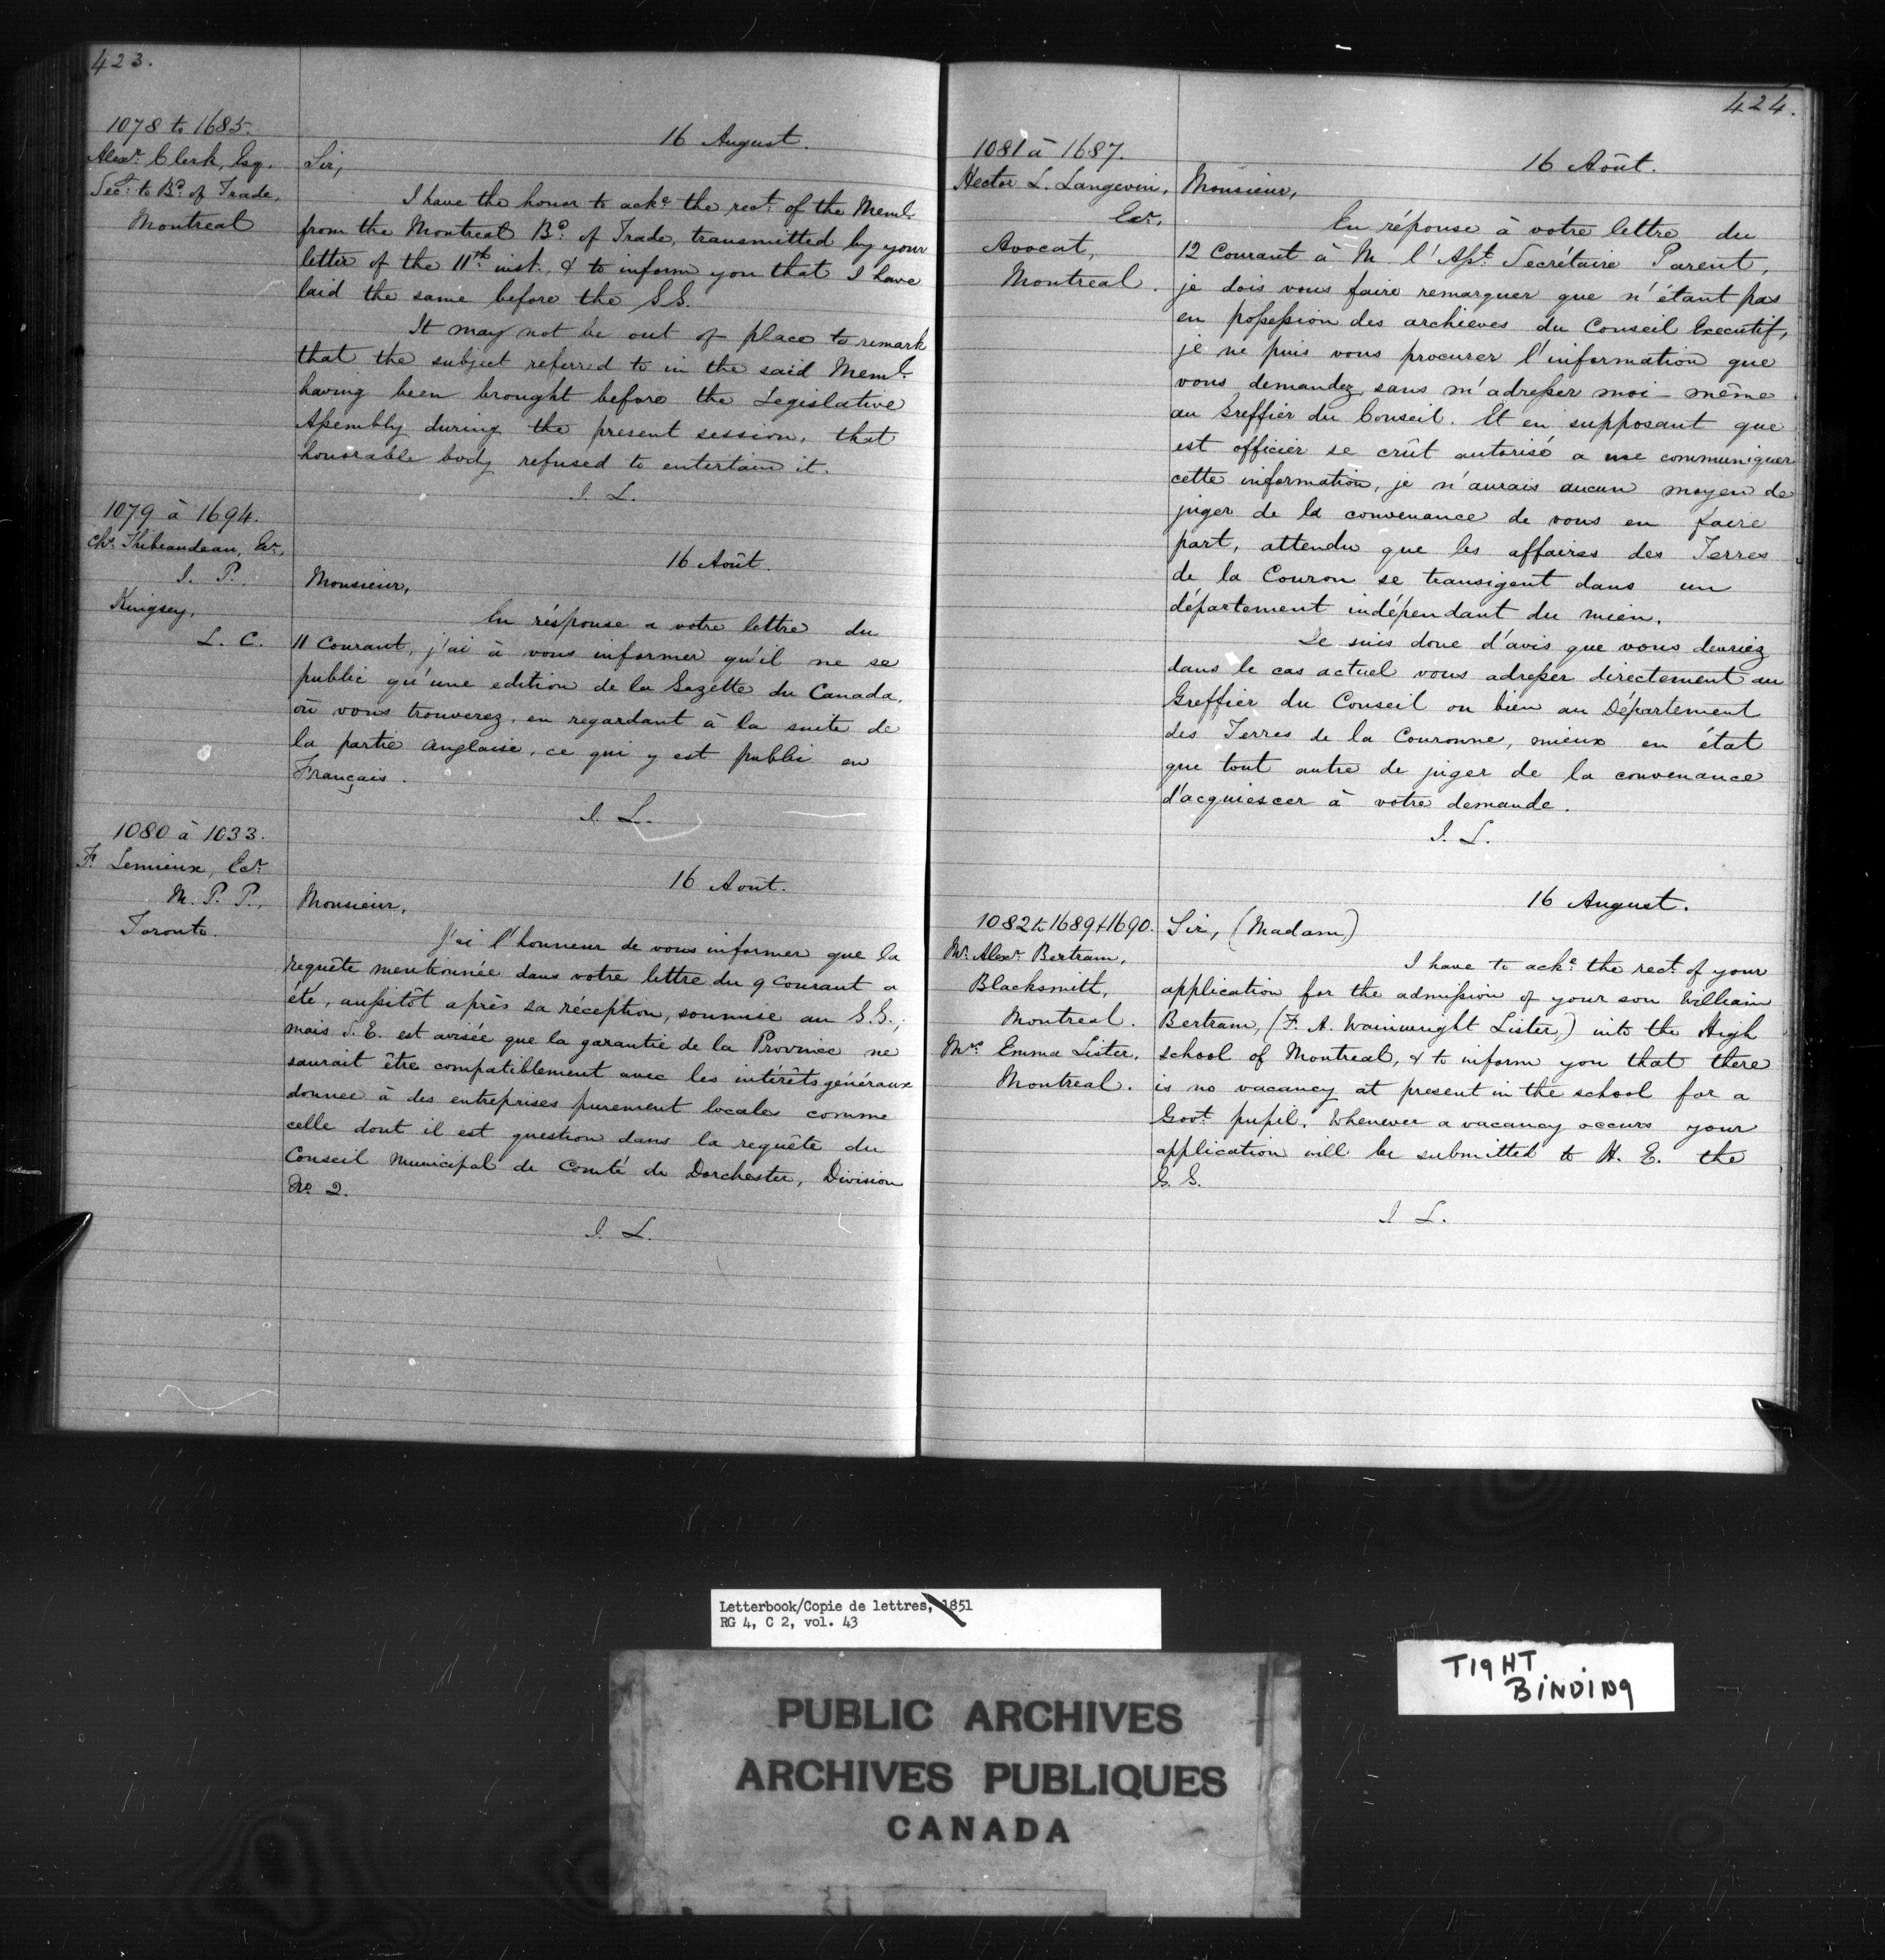 423.
1078 to 1685.
Alexr. Clerk, Esq.
Secy. to Bd. of Trade,
Montreal
16 August.
Sir,
I have the honor to acke. the rect. of the Meml.
from the Montreal Bd. of Trade, transmitted by your
letter of the 11th. inst., & to inform you that I have
laid the same before the G.G.
It may not be out of place to remark
that the subject referred to in the said Meml.
having been brought before the Legislative
Assembly during the present session, that
honorable body refused to entertain it.
J. L.
1079 à 1694.
Chs. Thibeaudeau, Ecr.,
J. P.
Kingsey,
L. C.
16 Août.
Monsieur,
En résponse a votre lettre du
11 Courant, j'ai à vous informer qu'il ne se
public qu'une edition de la Gazette du Canada,
où vous trouverez, en regardant à la suite de
la partie anglaise, ce qui y est publié en
Français.
J. L.
1080 à 1033.
F. Lemieux, Ecr.
M. P. P.,
Toronto.
16 Août.
Monsieur,
J'ai l'honneur de vous informer que la
requête mentionnée dans votre lettre du 9 Courant a
été, aussitôt après sa réception, soumise au G.G.;
mais S. E. est avisée que la garantie de la Province ne
saurait être compatiblement avec les intérêts généraux
donnee à des entreprises purement locales comme
celle dont il est question dans la requête du
Conseil Municipal de Comté de Dorchester, Division
No. 2.
J. L.
424.
1081 à 1687.
Hector L. Langevin,
Ecr.,
Avocat,
Montreal.
16 Août.
Monsieur,
En réponse à votre lettre du
12 Courant à M. l'Asst. Secrétaire Parent,
je dois vous faire remarquer que n'étant pas
en possession des archieves du Conseil Executif,
je ne puis vous procurer l'information que
vous demandez sans m'adresser moi-même
au Greffier du Conseil. Et en supposant que
cet officier se crût autorisé a me communiquer
cette information, je n'aurais aucun moyen de
juger de la convenance de vous en faire
part, attendu que les affaires des Terres
de la Couron se transigent dans un
département indépendant du mien.
Je suis donc d'avis que vous devriez
dans le cas actuel vous adresser directement au
Greffier du Conseil ou bien au Département
des Terres de la Couronne, mieux en état
que tout autre de juger de la convenance
d'acquiescer à votre demande.
J. L.
1082 to 1689 & 1690.
Mr. Alexr. Bertram,
Blacksmith,
Montreal.
Mrs. Emma Lister,
Montreal.
16 August.
Sir, (Madam)
I have to acke. the rect. of your
application for the admission of your son William
Bertram, (F. A. Wainwright Lister,) into the High
school of Montreal, & to inform you that there
is no vacancy at present in the school for a
Govt. pupil. Whenever a vacancy occurs your
application will be submitted to H. E. the
G. G.
J. L.
Letterbook/Copie de lettres, 1851
RG 4, C 2, vol. 43
TIGHT
BINDING
PUBLIC ARCHIVES
ARCHIVES PUBLIQUES
CANADA